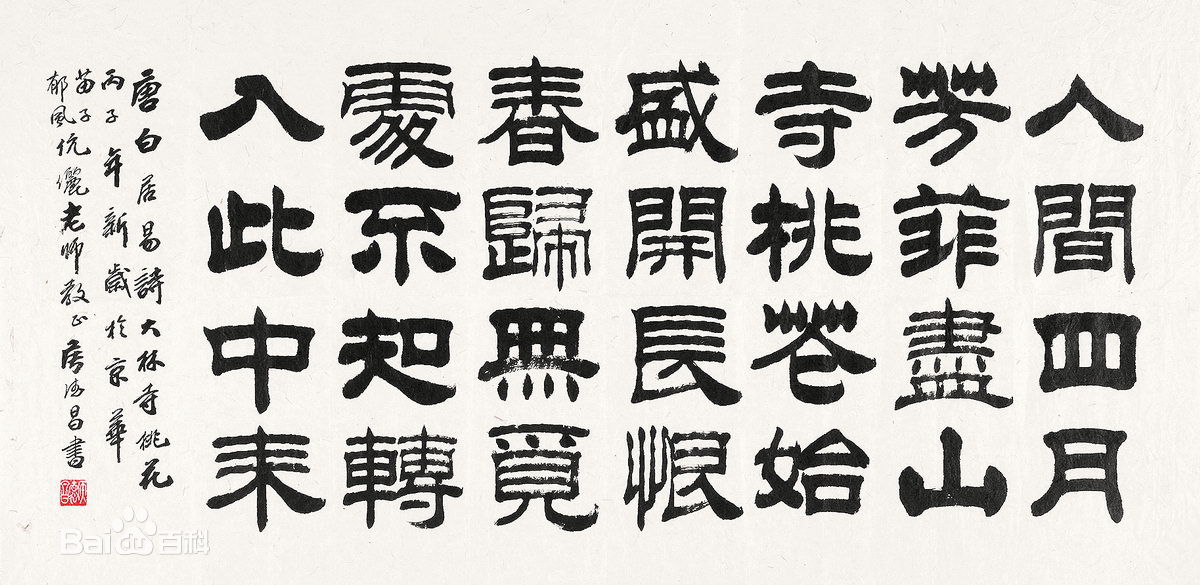 人間四月
芳菲盡山
寺桃花始
盛開長恨
春歸無覓
處不知轉
入此中來
唐白居易詩大林寺桃花
丙子年新歲於京華
苗子
郁風伉儷老師教正 侯德昌書
Bai百科